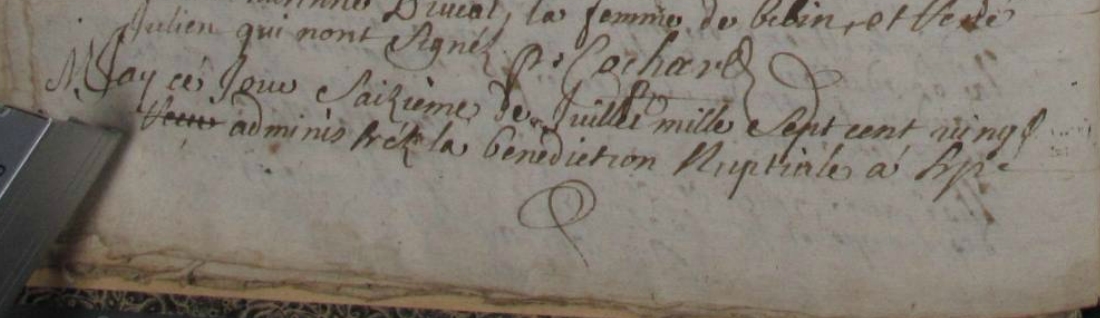 Duval, la femme de belin, et René
Julien qui nont Signéz P. Cochard
M. Jay ce Jour Saizième de Juillet mille Sept cent vingt
administréz la benediction Nuptiale a